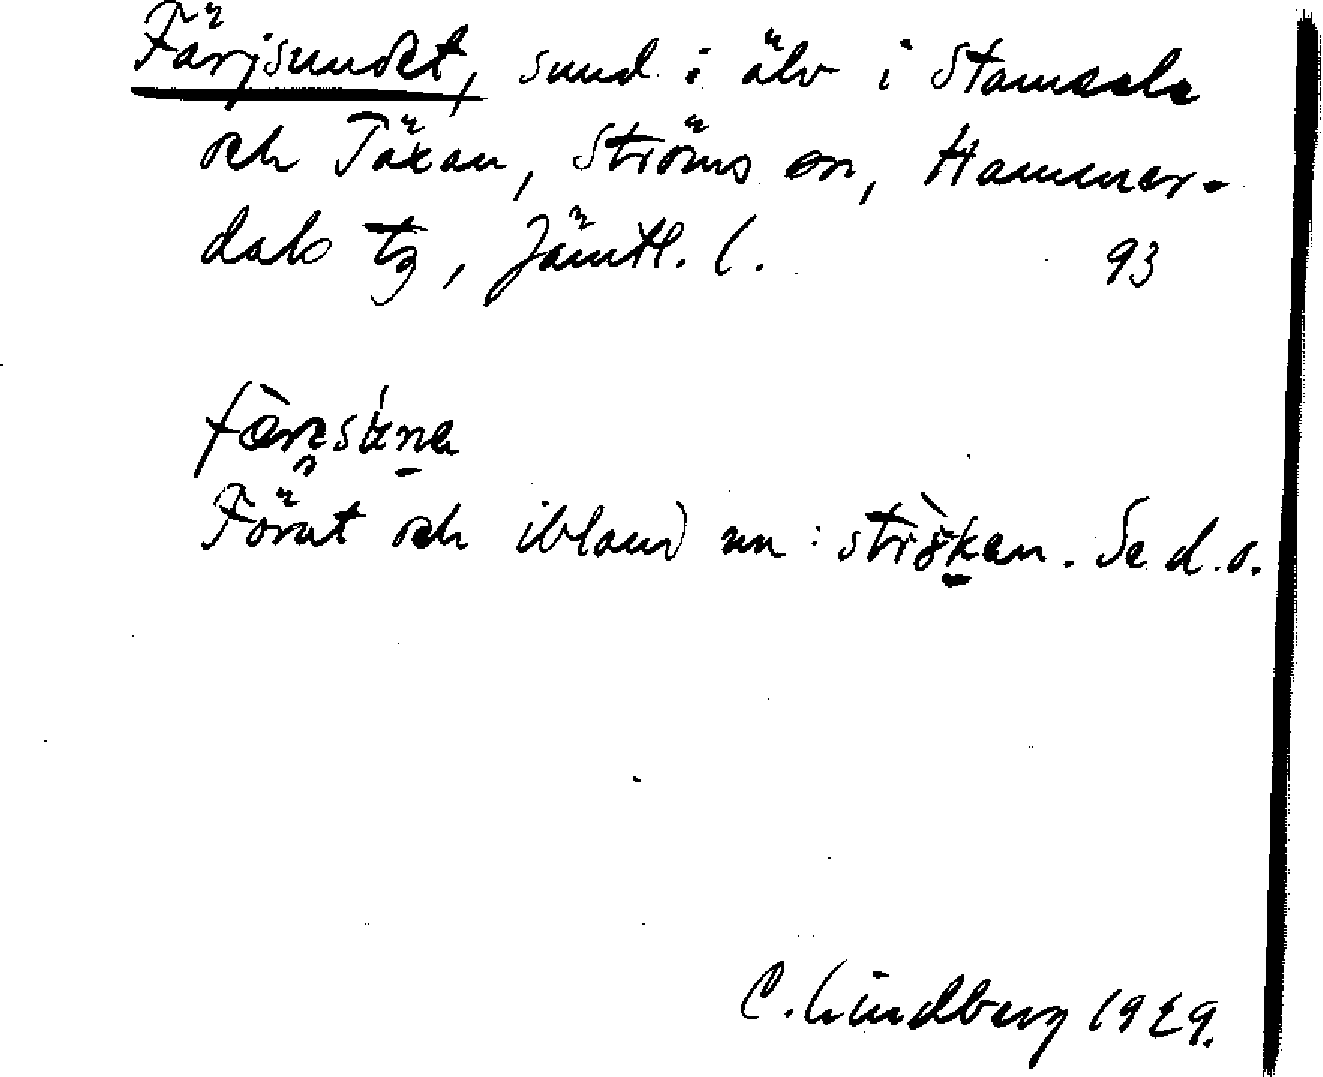 Färjsundet, sund i älv i Stamsele
och Täxan, Ströms sn, Hammer-
dals tg, Jämtl. l. 93
Förut och ibland nu: strö̀ken. Se d. o.
C. Lindberg 1929.